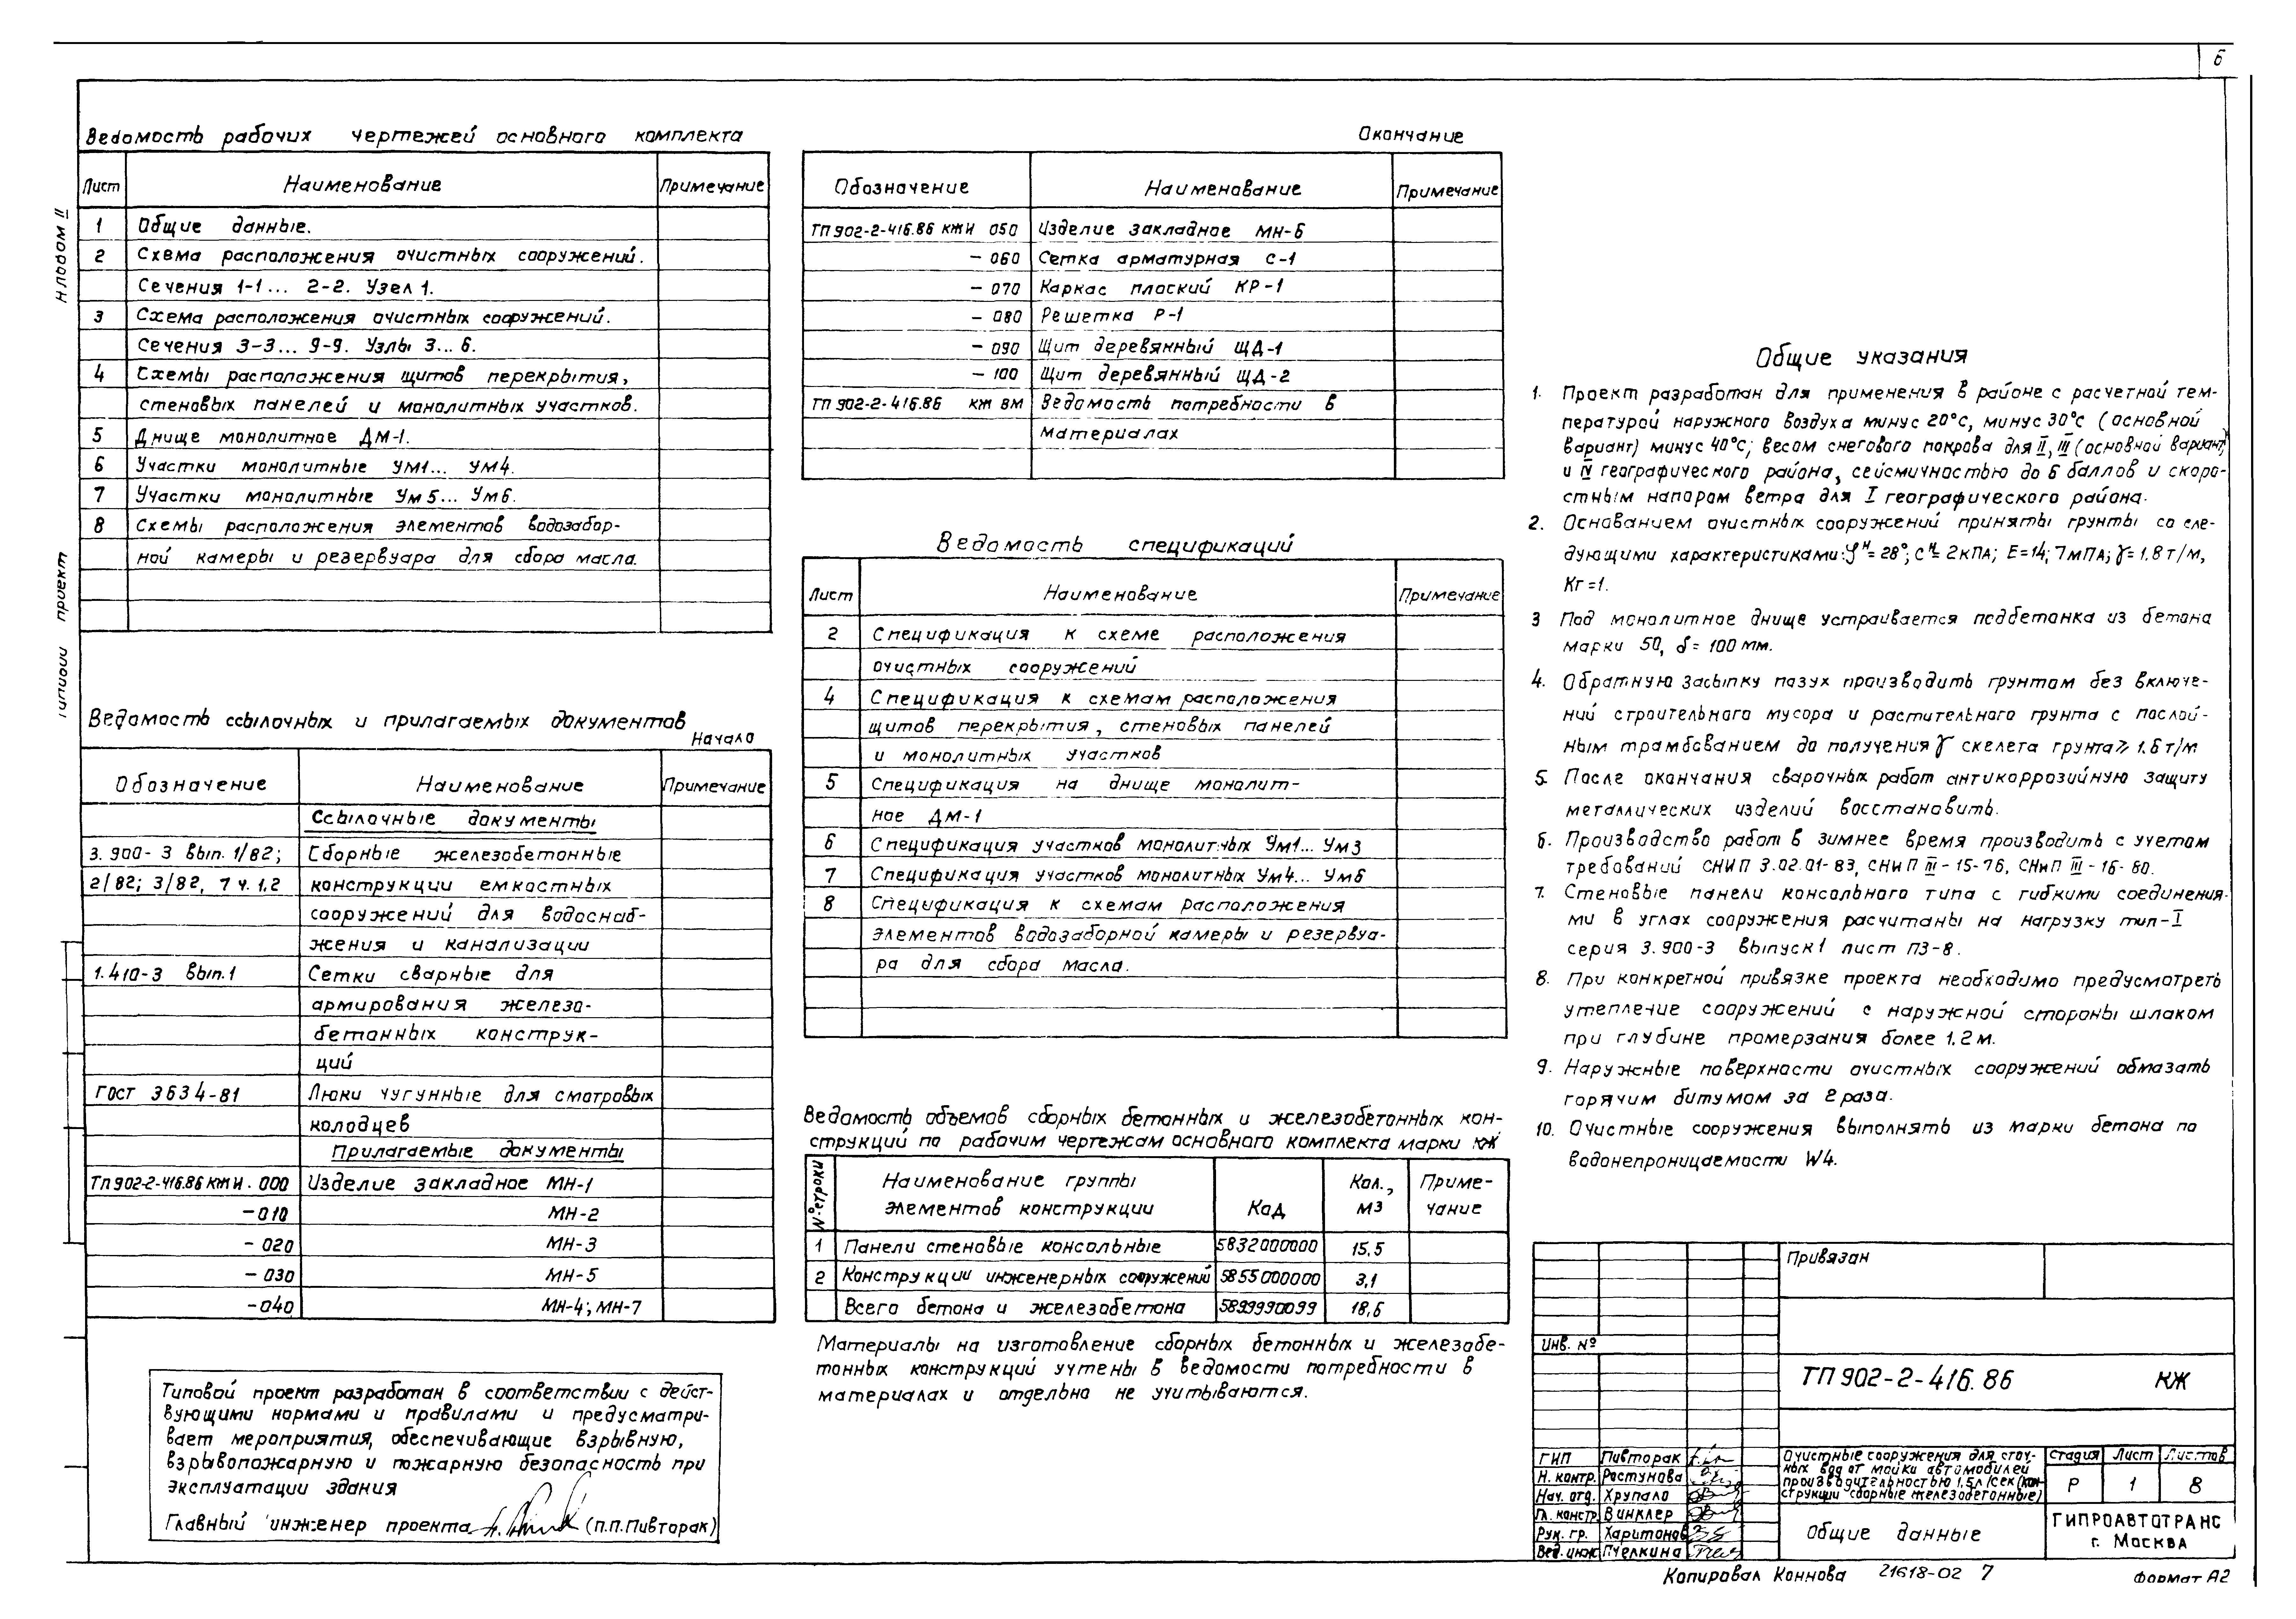 6
Альбом II
Типовой проект
Ведомость рабочих чертежей основного комплекта
Лист Наименование Примечание
1 Общие данные.
2 Схема расположения очистных сооружений.
Сечения 1-1... 2-2. Узел 1.
3 Схема расположения очистных сооружений.
Сечения 3-3... 9-9. Узлы 3... 6.
4 Схемы расположения щитов перекрытия,
стеновых панелей и монолитных участков.
5 Днище монолитное ДМ-1.
6 Участки монолитные УМ1... УМ4.
7 Участки монолитные Ум5... Ум6.
8 Схемы расположения элементов водозабор-
ной камеры и резервуара для сбора масла.
Ведомость ссылочных и прилагаемых документов
Начало
Обозначение Наименование Примечание
Ссылочные документы
3.900-3 вып. 1/82; Сборные железобетонные
2/82; 3/82, 7 ч. 1,2 конструкции емкостных
сооружений для водоснаб-
жения и канализации
1.410-3 вып.1 Сетки сварные для
армирования железо-
бетонных конструк-
ций
ГОСТ 3634-81 Люки чугунные для смотровых
колодцев
Прилагаемые документы
ТП902-2-416.86 КЖИ. 000 Изделие закладное МН-1
-010 МН-2
-020 МН-3
-030 МН-5
-040 МН-4; МН-7
Типовой проект разработан в соответствии с дейст-
вующими нормами и правилами и предусматри-
вает мероприятия, обеспечивающие взрывную,
взрывопожарную и пожарную безопасность при
эксплуатации здания
Главный инженер проекта (П.П.Пивторак)
Окончание
Обозначение Наименование Примечание
ТП902-2-416.86 КЖИ 050 Изделие закладное МН-6
- 060 Сетка арматурная С-1
- 070 Каркас плоский КР-1
- 080 Решетка Р-1
- 090 Щит деревянный ЩД-1
- 100 Щит деревянный ЩД-2
ТП 902-2-416.86 КЖ ВМ Ведомость потребности в
материалах
Ведомость спецификаций
Лист Наименование Примечание
2 Спецификация к схеме расположения
очистных сооружений
4 Спецификация к схемам расположения
щитов перекрытия, стеновых панелей
и монолитных участков
5 Спецификация на днище монолит-
ное ДМ-1
6 Спецификация участков монолитных Ум1... Ум3
7 Спецификация участков монолитных Ум4... Ум6
8 Спецификация к схемам расположения
элементов водозаборной камеры и резервуа-
ра для сбора масла.
Ведомость объемов сборных бетонных и железобетонных кон-
струкций по рабочим чертежам основного комплекта марки КЖ
№ строки Наименование группы элементов конструкции Код Кол., м3 Приме-чание
1 Панели стеновые консольные 5832000000 15,5
2 Конструкции инженерных сооружений 5855000000 3,1
Всего бетона и железобетона 5899990099 18,6
Материалы на изготовление сборных бетонных и железобе-
тонных конструкций учтены в ведомости потребности в
материалах и отдельно не учитываются.
Общие указания
1. Проект разработан для применения в районе с расчетной тем-
пературой наружного воздуха минус 20°С, минус 30°С (основной
вариант) минус 40°С; весом снегового покрова для II, III (основной вариант)
и IV географического района, сейсмичностью до 6 баллов и скоро-
стным напором ветра для I географического района.
2. Основанием очистных сооружений приняты грунты со сле-
дующими характеристиками: φн= 28°; сн= 2кПА; Е=14,7мПА; γ=1.8т/м,
Кг=1.
3 Под монолитное днище устраивается подбетонка из бетона
марки 50, δ= 100 мм.
4. Обратную засыпку пазух производить грунтом без включе-
ний строительного мусора и растительного грунта с послой-
ным трамбованием до получения γ скелета грунта ⩾ 1.6т/м
5. После окончания сварочных работ антикоррозийную защиту
металлических изделий восстановить.
6. Производство работ в зимнее время производить с учетом
требований СНИП 3.02.01-83, СНиП III-15-76, СНиП III-16-80.
7. Стеновые панели консольного типа с гибкими соединения-
ми в углах сооружения расчитаны на нагрузку тип-I
серия 3.900-3 выпуск1 лист ПЗ-8.
8. При конкретной привязке проекта необходимо предусмотреть
утепление сооружений с наружной стороны шлаком
при глубине промерзания более 1.2м.
9. Наружные поверхности очистных сооружений обмазать
горячим битумом за 2 раза.
10. Очистные сооружения выполнять из марки бетона по
водонепроницаемости W4.
Привязан
Инв. №
ТП 902-2-416.86 КЖ
ГИП Пивторак
Н. контр. Растунова
Нач. отд. Хрупало
Гл. констр. Винклер
Рук. гр. Харитонов
Вед. инж. Пчелкина
Очистные сооружения для сточ-
ных вод от мойки автомобилей
производительностью 1,5л/сек (кон-
струкции сборные железобетонные)
Стадия Лист Листов
Р 1 8
Общие данные
ГИПРОАВТОТРАНС
г. Москва
Копировал Коннова 21618-02 7 Формат А2